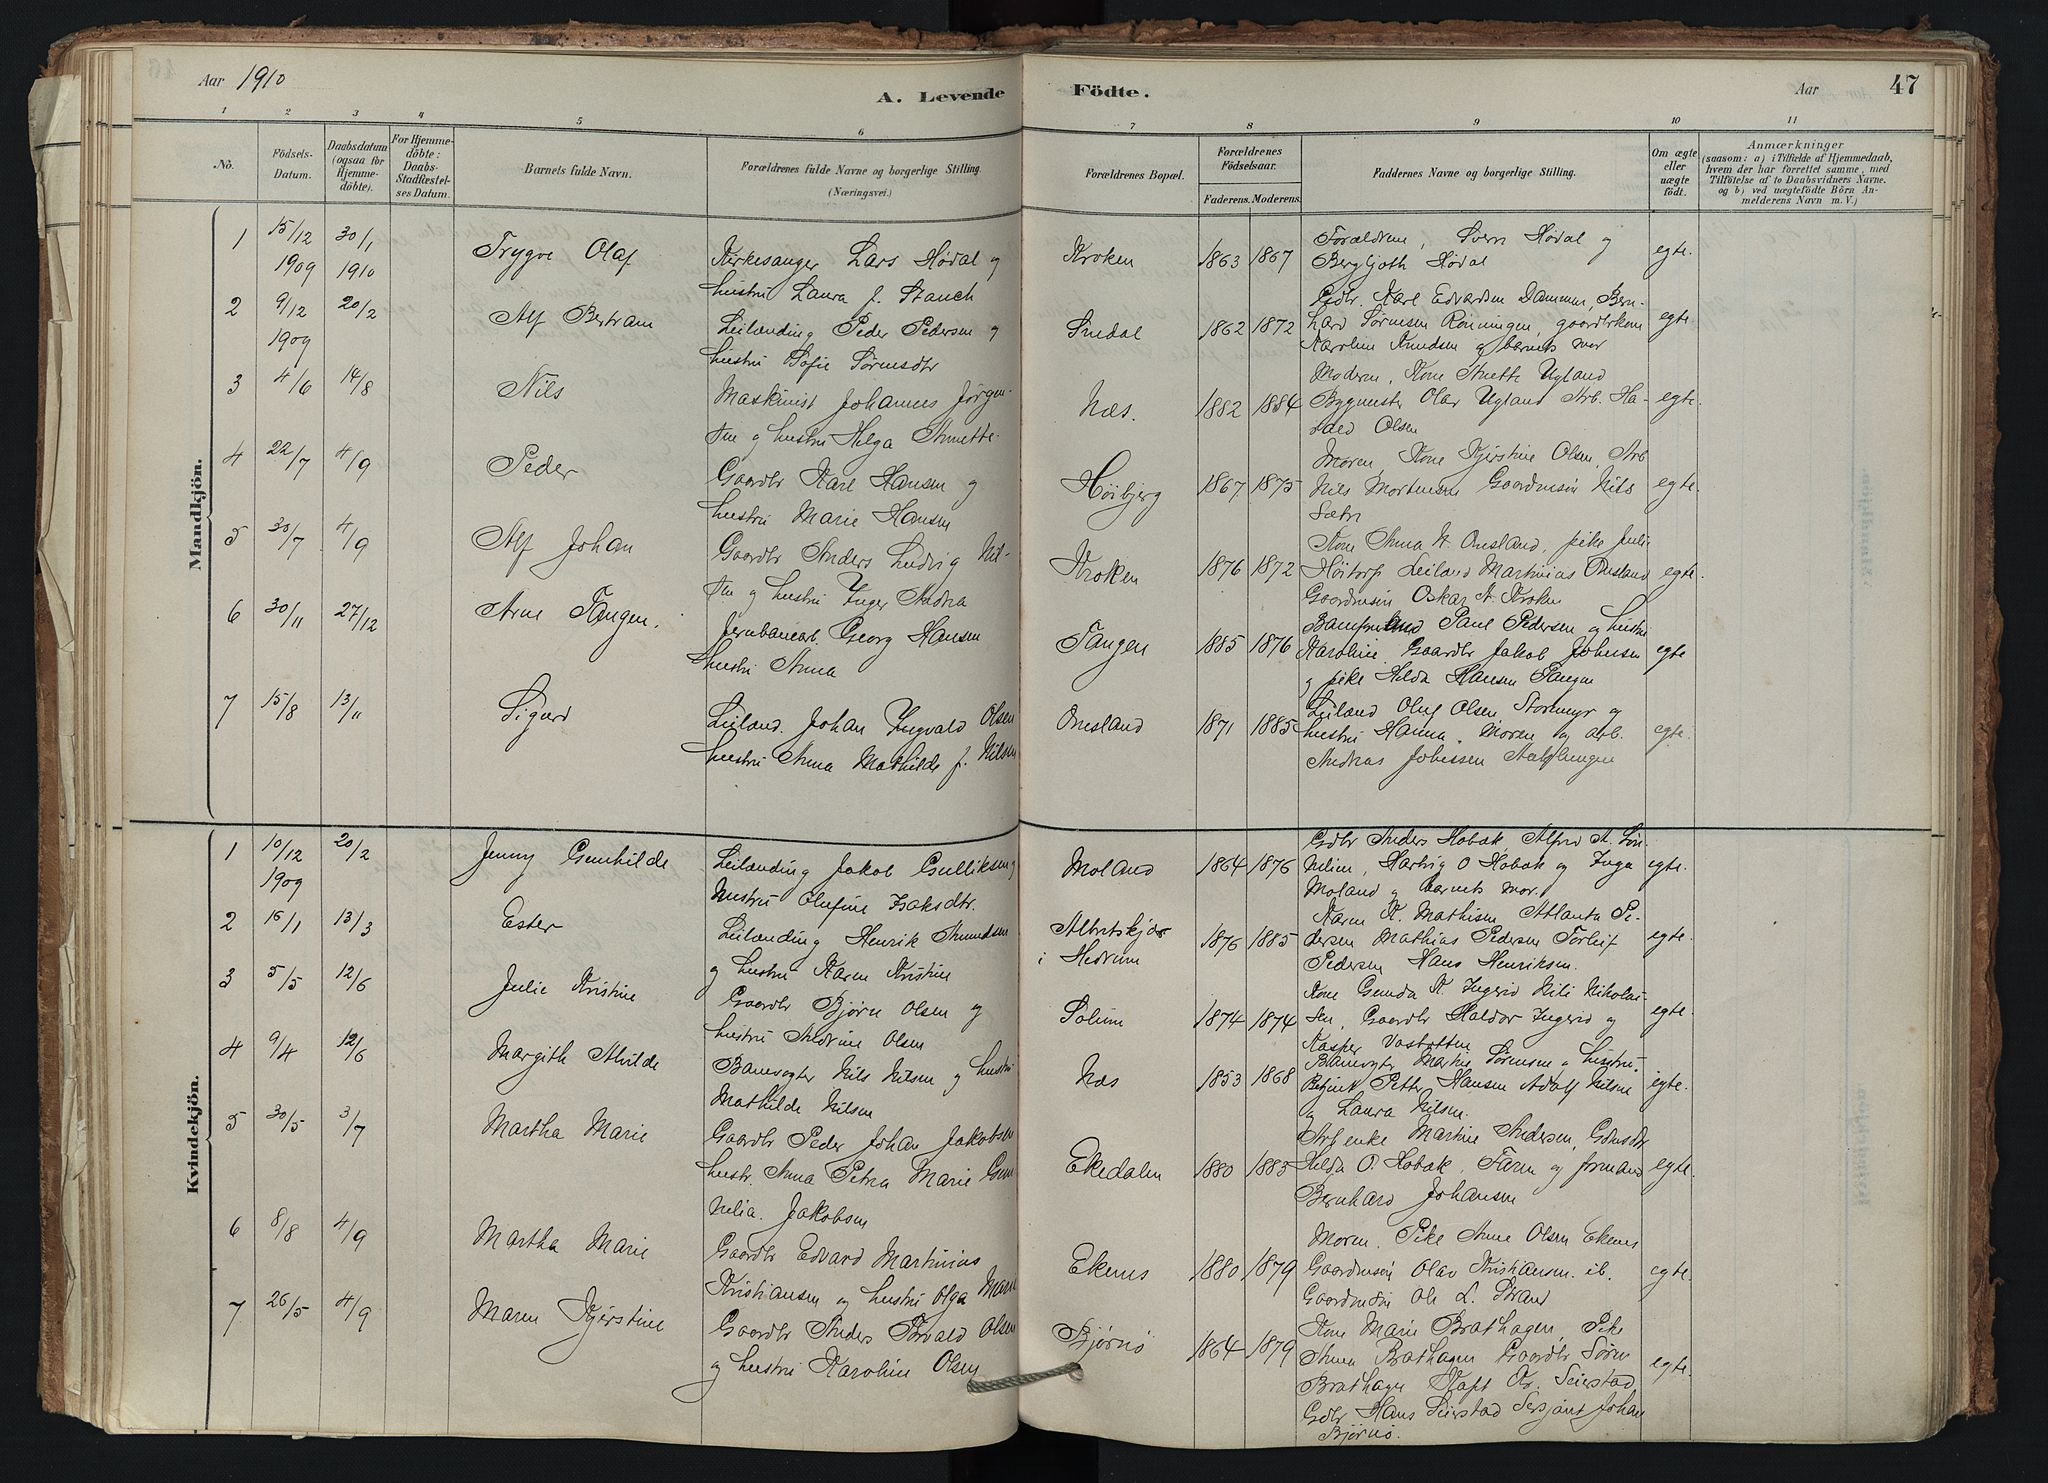 Aar 1910
A. Levende Födte.
Aar 47
1 2 3 4 5 6 7 8 9 10 11
No.
Födsels-Datum.
Daabsdatum (ogsaa for Hjemme-döbte).
For Hjemme-döbte: Daabs-Stadfæstel-ses Datum.
Barnets fulde Navn.
Forældrenes fulde Navne og borgerlige Stilling. (Næringsvei.)
Forældrenes Bopæl.
Forældrenes Födselsaar.
Faderens. Moderens.
Faddernes Navne og borgerlige Stilling.
Om ægte eller uægte födt.
Anmærkninger
(saasom: a) i Tilfælde af Hjemmedaab, hvem der har forrettet samme, med Tilföielse af to Daabsvidners Navne, og b) ved uægtefödte Börn An-melderens Navn m. V.)
Mandkjön.
1 15/12 1909 30/1 1910 Trygve Olaf
Kirkesanger Lars Hødal og
hustru Laura f. Stauch
Kroken 1863 1867
Forældrene, Sven Hødal og
Bergljoth Hødal
egte.
2 9/12 1909 20/2 Alf Bertram
Leilænding Peder Pedersen og
hustru Sofie Sørensdtr
1862 1872
Gdbr. Karl Edvardsen Dammen, Bern-
hard Sørensen Rønningen, gaardbrkone
Karoline Knudsen og barnets mor
egte.
3 4/6 14/8 Nils
Maskinist Johannes Jørgen-
sen og hustru Helga Annette
Næs. 1882 1884
Moderen, Kone Anette Ugland
Bygmester Olav Ugland Arb. Ha-
rald Olsen
egte.
4 22/7 4/9 Peder
Gaardbr Karl Hansen og
hustru Marie Hansen
Höibjerg 1867 1875
Moren, Kone Kjerstine Olsen, Arb
Nils Mortensen Gaardmsön Nils
Sætre
egte.
5 30/7 4/9 Alf Johan
Gaardbr Anders Ludvig Nil-
sen og hustru Inger Andrea
Kroken 1876 1872
Kone Anna N. Onsland, pike Juli
Höitorp Leiland Martinius Onsland
Gaardmsön Oskar A. Kroken
egte.
6 30/11 27/12 Arne Tangen.
Jernbanearb. Georg Hansen
hustru Anna
Tangen 1885 1876
Paul Pedersen og hustru
Karoline, Gaardbr Jakob Johnsen
og pike Hilda Hansen Tangen
egte
7 15/8 13/11 Sigurd
Leiland. Johan Ingvald Olsen
hustru Anna Mathilde f. Nilsen
Onsland 1871 1885
Leiland Oluf Olsen, Stormyr og
hustru Hanna. Moren og arb.
Andreas Johnssen
egte.
Kvindekjön.
1 10/12 1909 20/2 Jenny Gunhilde
Leilænding Jakob Gulliksen og
hustru Olufine Isaksdtr.
Moland 1864 1876
Gdbr Anders Hobæk, Alfred A.
Hartvig O Hobæk og Inga
Moland og barnets mor.
egte.
2 16/1 13/3 Ester
Leilænding Henrik Amundsen
og hustru Karen Kristine
i Hedrum 1876 1885
Karen K. Mathisen, Atlanta Pe-
dersen Mathias Pedersen Torleif
Pedersen Hans Henriksen.
egte.
3 5/5 12/6 Julie Kristine
Gaardbr Bjørn Olsen og
hustru Andrine Olsen
Solum 1874 1874
Kone Gunda K. Nils Nikolai-
sen, Gaardbr Haldor og
Kasper
egte.
4 9/4 12/6 Margith Alvilde
Banevogter Nils Nilsen og hustru
Mathilde Nilsen
Næs 1853 1868
Banevogter Martin Sørensen og hustru,
Betjent Petter Hansen Adolf Nilsen
og Laura Nilsen.
egte.
5 30/5 3/7 Martha Marie
Gaardbr Peder Johan Jakobsen
hustr. Anna Petra Marie
Jakobsen
Ekedalen 1880 1883
Arb enke Martine Andersen,
Hilda O. Hobæk. Faren og formand
Bernhard Johansen
egte.
6 8/8 4/9 Martha Marie
Gaardbr Edvard Martinius
Kristiansen og hustru Olga Marie
Ekenes 1880 1879
Moren. Pike Anne Olsen Ekenes
Gaardmsön Olav Kristiansen ib.
Gaardmsön Ole L.
egte.
7 26/5 4/9 Maren Kjerstine
Gaardbr Anders Torvald Olsen
og hustru Karoline Olsen
Bjørnø 1864 1879
Kone Marie Brathagen, Pike
Anna Brathagen Gaardbr Søren
Brathagen Seierstad
Gdbr Hans Seierstad Sersjant Johan
Bjørnø.
egte.